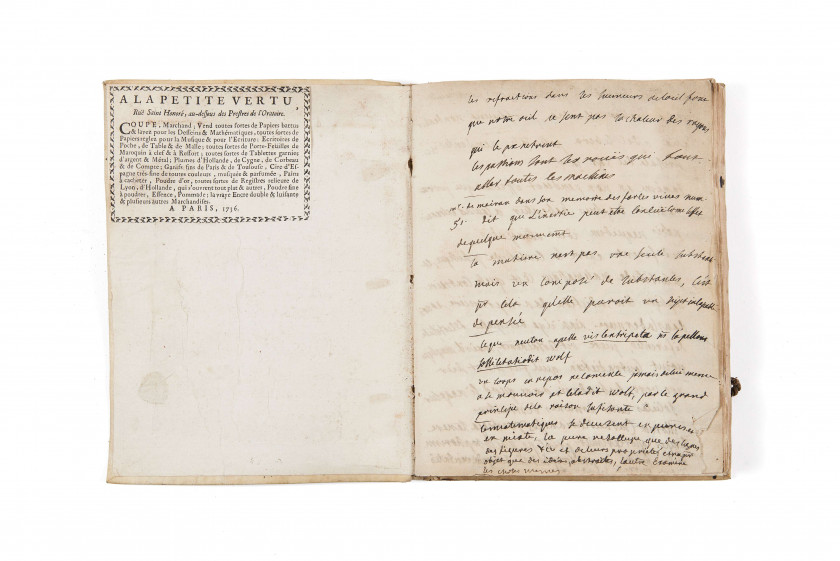 A LA PETITE VERTU,
Ruë Saint Honoré, au-dessus des Prestres de l'Oratoire.
COUPE, Marchand, Vend toutes sortes de Papiers battus
& lavez pour les Desseins & Mathématiques, toutes sortes de
Papiers reglez pour la Musique & pour l'Ecriture; Ecritoires de
Poche, de Table & de Malle; toutes sortes de Porte-Feüilles de
Maroquin à clef & à Ressort; toutes sortes de Tablettes garnies
d'argent & Métal; Plumes d'Hollande, de Cygne, de Corbeau
& de Compte; Ganifs fins de Paris & de Toulouse; Cire d'Es-
pagne très-fine de toutes couleurs, musquée & parfumée, Pains
à cacheter, Poudre d'or, toutes sortes de Registres relieure de
Lyon, d'Hollande, qui s'ouvrent tout plat & autres, Poudre fine
à poudrer, Essence, Pommade; la vraye Encre double & luisante
& plusieurs autres Marchandises.
A PARIS, 1736.
les refractions dans les humeurs de loeil font
que notre oeil ne sent pas la chaleur des rayons
qui le
les passions sont les roües qui font
aller toutes les machines
mr. de mairan dans son memoire des forces vives num
51. dit que l'inertie peut être
de quelque mouvement
la matiere nest pas une seule substance
mais un composé de substances, c'est
pr cela quelle paroit un sujet incapable
de pensée
ce que neuton apelle vis centripeta
sollicitation dit wolf
un corps en repos ne comence jamais de lui meme
a se mouvoir et cela dit wolf, par le grand
principe de la raison sufisante
les matematiques se divisent en pures et
en mixte, la pure
des figures et de leurs proprietés
objet que des idées abstraites, lautre examine
les choses memes